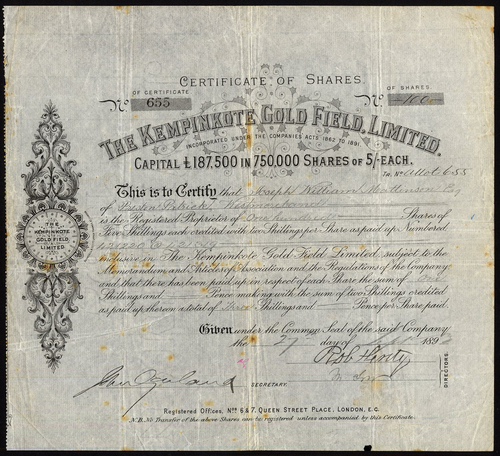 CERTIFICATE OF SHARES.
OF CERTIFICATE
No 655
OF SHARES.
No 100
THE KEMPINKOTE GOLD FIELD, LIMITED.
INCORPORATED UNDER THE COMPANIES ACTS 1862 TO 1891.
CAPITAL £187,500 IN 750,000 SHARES OF 5/- EACH.
Allot 655
This is to Certify that Joseph William
of Preston Patrick Westmoreland
is the Registered Proprietor of One hundred Shares of
Five Shillings each credited with two Shillings per Share as paid up Numbered
inclusive in The Kempinkote Gold Field Limited, subject to the
Memorandum and Articles of Association and the Regulations of the Company
and that there has been paid up in respect of each Share the sum of
Shillings and Pence making with the sum of two Shillings credited
as paid up thereon a total of Three Shillings and Pence per Share paid.
Given under the Common Seal of the said Company
the 27 day of Sept 189
DIRECTORS.
SECRETARY.
THE
KEMPINKOTE
GOLD FIELD
LIMITED
Registered Offices, Nos 6 & 7, QUEEN STREET PLACE, LONDON, E.C.
N.B. No Transfer of the above Shares can be registered unless accompanied by this Certificate.